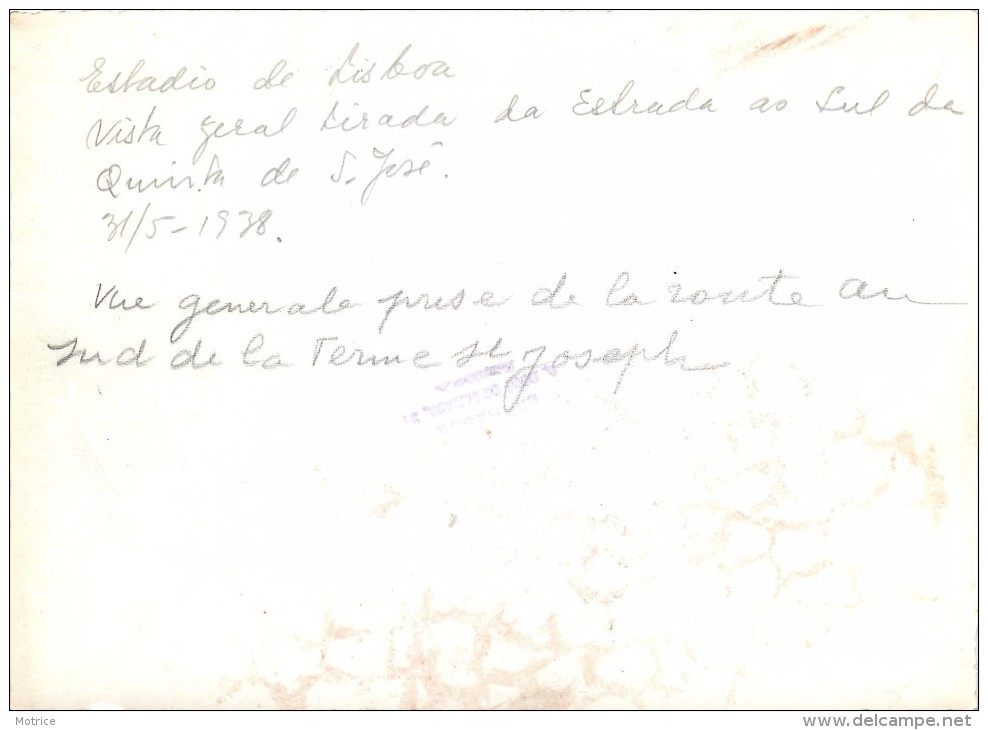 Estadio de Lisboa
Vista geral tirada da Estrada ao Sul da
Quinta de S. José.
31/5-1938.
Vue generale prise de la route au
sud de la Ferme St Joseph
Motrice
delcampe.net